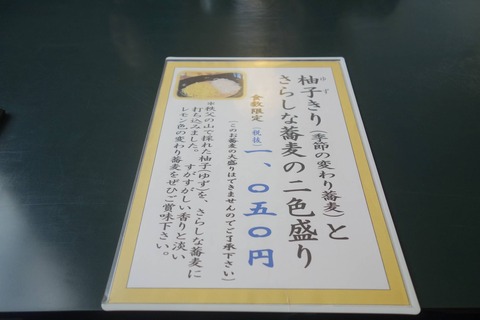 ゆず
柚子きり(季節の変わり蕎麦)と
さらしな蕎麦の二色盛り
食数限定(税抜)一、〇五〇円
(このお蕎麦の大盛りはできませんのでご了承下さい)
※秩父の山で採れた柚子(ゆず)を、さらしな蕎麦に
打ち込みました。すがすがしい香りと淡い
レモン色の変わり蕎麦をぜひご賞味下さい。